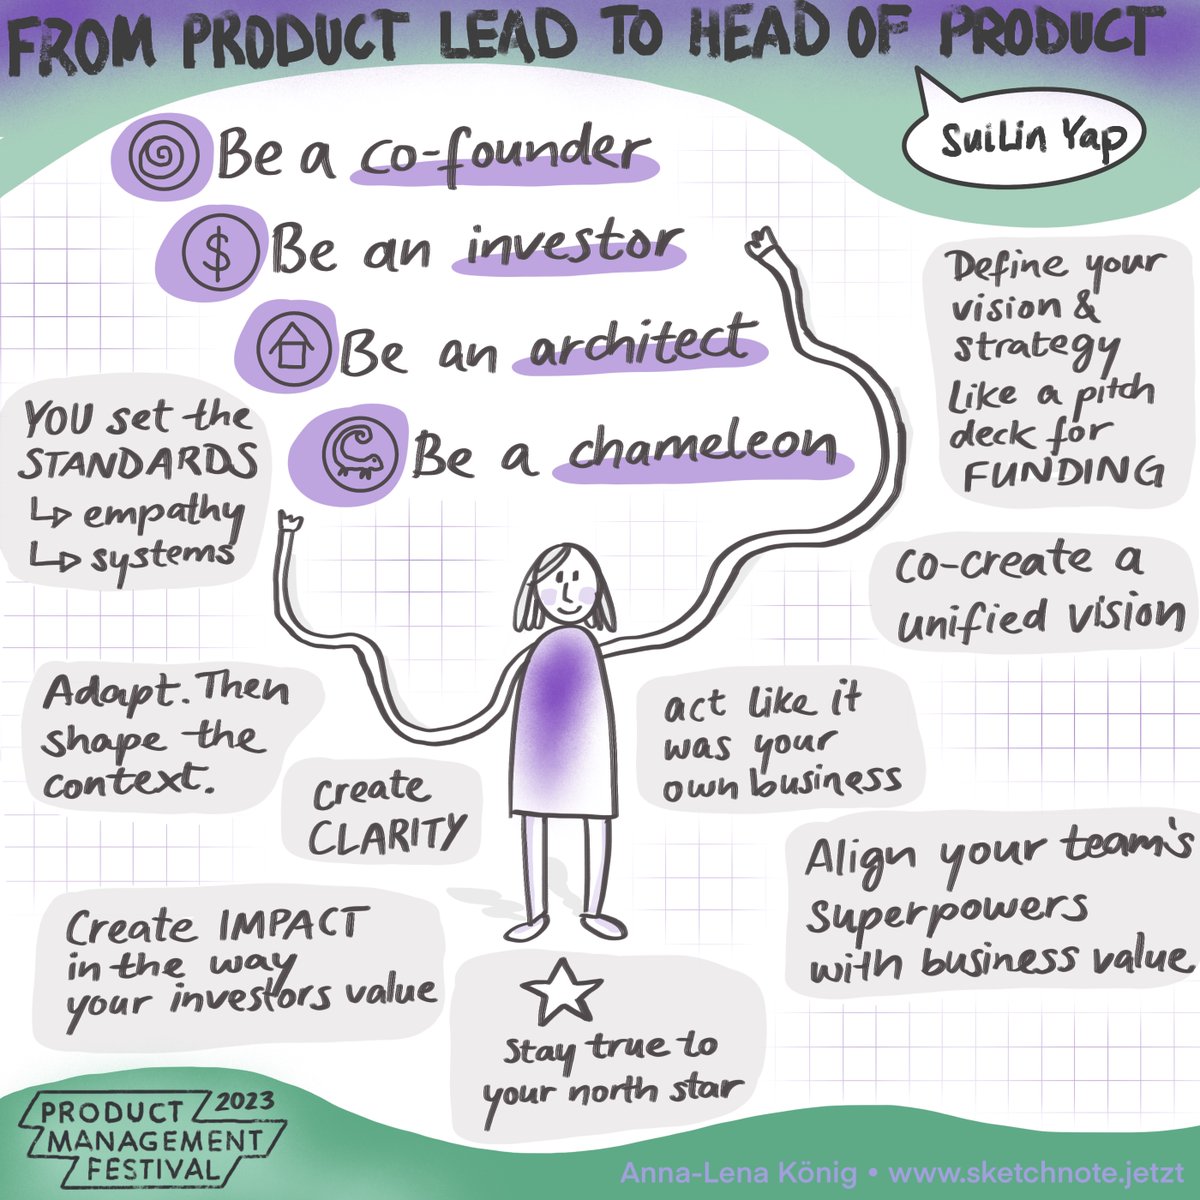 FROM PRODUCT LEAD TO HEAD OF PRODUCT
SuiLin Yap
Be a co-founder
$
Be an investor
Be an architect
Be a chameleon
Define your
vision &
strategy
Like a pitch
deck for
FUNDING
YOU set the
STANDARDS
↳ empathy
↳ systems
co-create a
unified vision
Adapt. Then
shape the
context.
Create
CLARITY
act like it
was your
own business
Align your team's
superpowers
with business value
Create IMPACT
in the way
your investors value
stay true to
your north star
PRODUCT 2023
MANAGEMENT
FESTIVAL
Anna-Lena König • www.sketchnote.jetzt